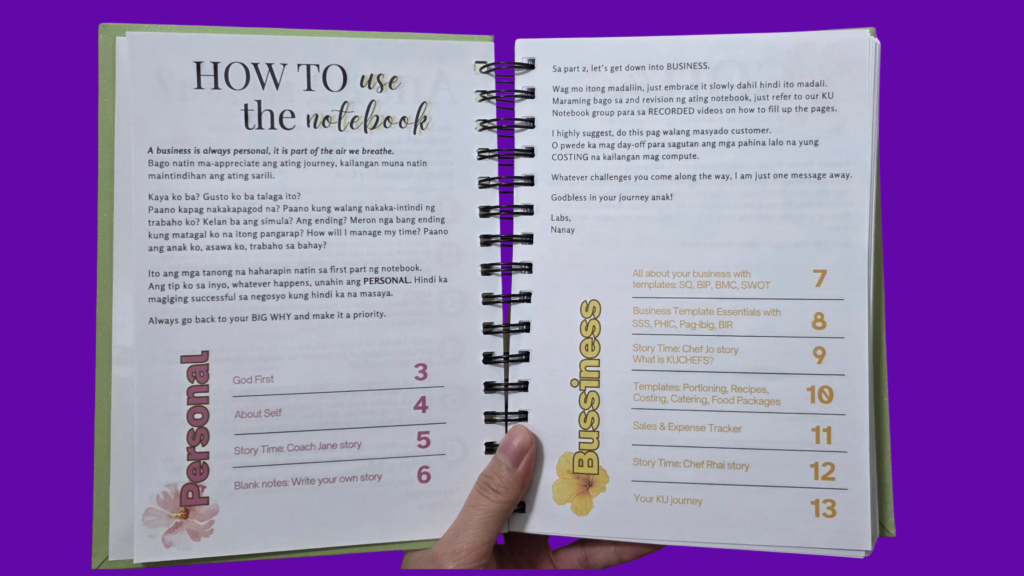 HOW TO use
the notebook
A business is always personal, it is part of the air we breathe.
Bago natin ma-appreciate ang ating journey, kailangan muna natin
maintindihan ang ating sarili.
Kaya ko ba? Gusto ko ba talaga ito?
Paano kapag nakakapagod na? Paano kung walang nakaka-intindi ng
trabaho ko? Kelan ba ang simula? Ang ending? Meron nga bang ending
kung matagal ko na itong pangarap? How will I manage my time? Paano
ang anak ko, asawa ko, trabaho sa bahay?
Ito ang mga tanong na haharapin natin sa first part ng notebook.
Ang tip ko sa inyo, whatever happens, unahin ang PERSONAL. Hindi ka
magiging successful sa negosyo kung hindi ka na masaya.
Always go back to your BIG WHY and make it a priority.
Personal
God First 3
About Self 4
Story Time: Coach Jane story 5
Blank notes: Write your own story 6
Sa part 2, let's get down into BUSINESS.
Wag mo itong madaliin, just embrace it slowly dahil hindi ito madali.
Maraming bago sa 2nd revision ng ating notebook, just refer to our KU
Notebook group para sa RECORDED videos on how to fill up the pages.
I highly suggest, do this pag walang masyado customer.
O pwede ka mag day-off para sagutan ang mga pahina lalo na yung
COSTING na kailangan mag compute.
Whatever challenges you come along the way, I am just one message away.
Godbless in your journey anak!
Labs,
Nanay
Bussiness
All about your business with
templates: SQ, BIP, BMC, SWOT 7
Business Template Essentials with
SSS, PHIC, Pag-ibig, BIR 8
Story Time: Chef Jo story
What is KUCHEFS? 9
Templates: Portioning, Recipes,
Costing, Catering, Food Packages 10
Sales & Expense Tracker 11
Story Time: Chef Rhai story 12
Your KU journey 13